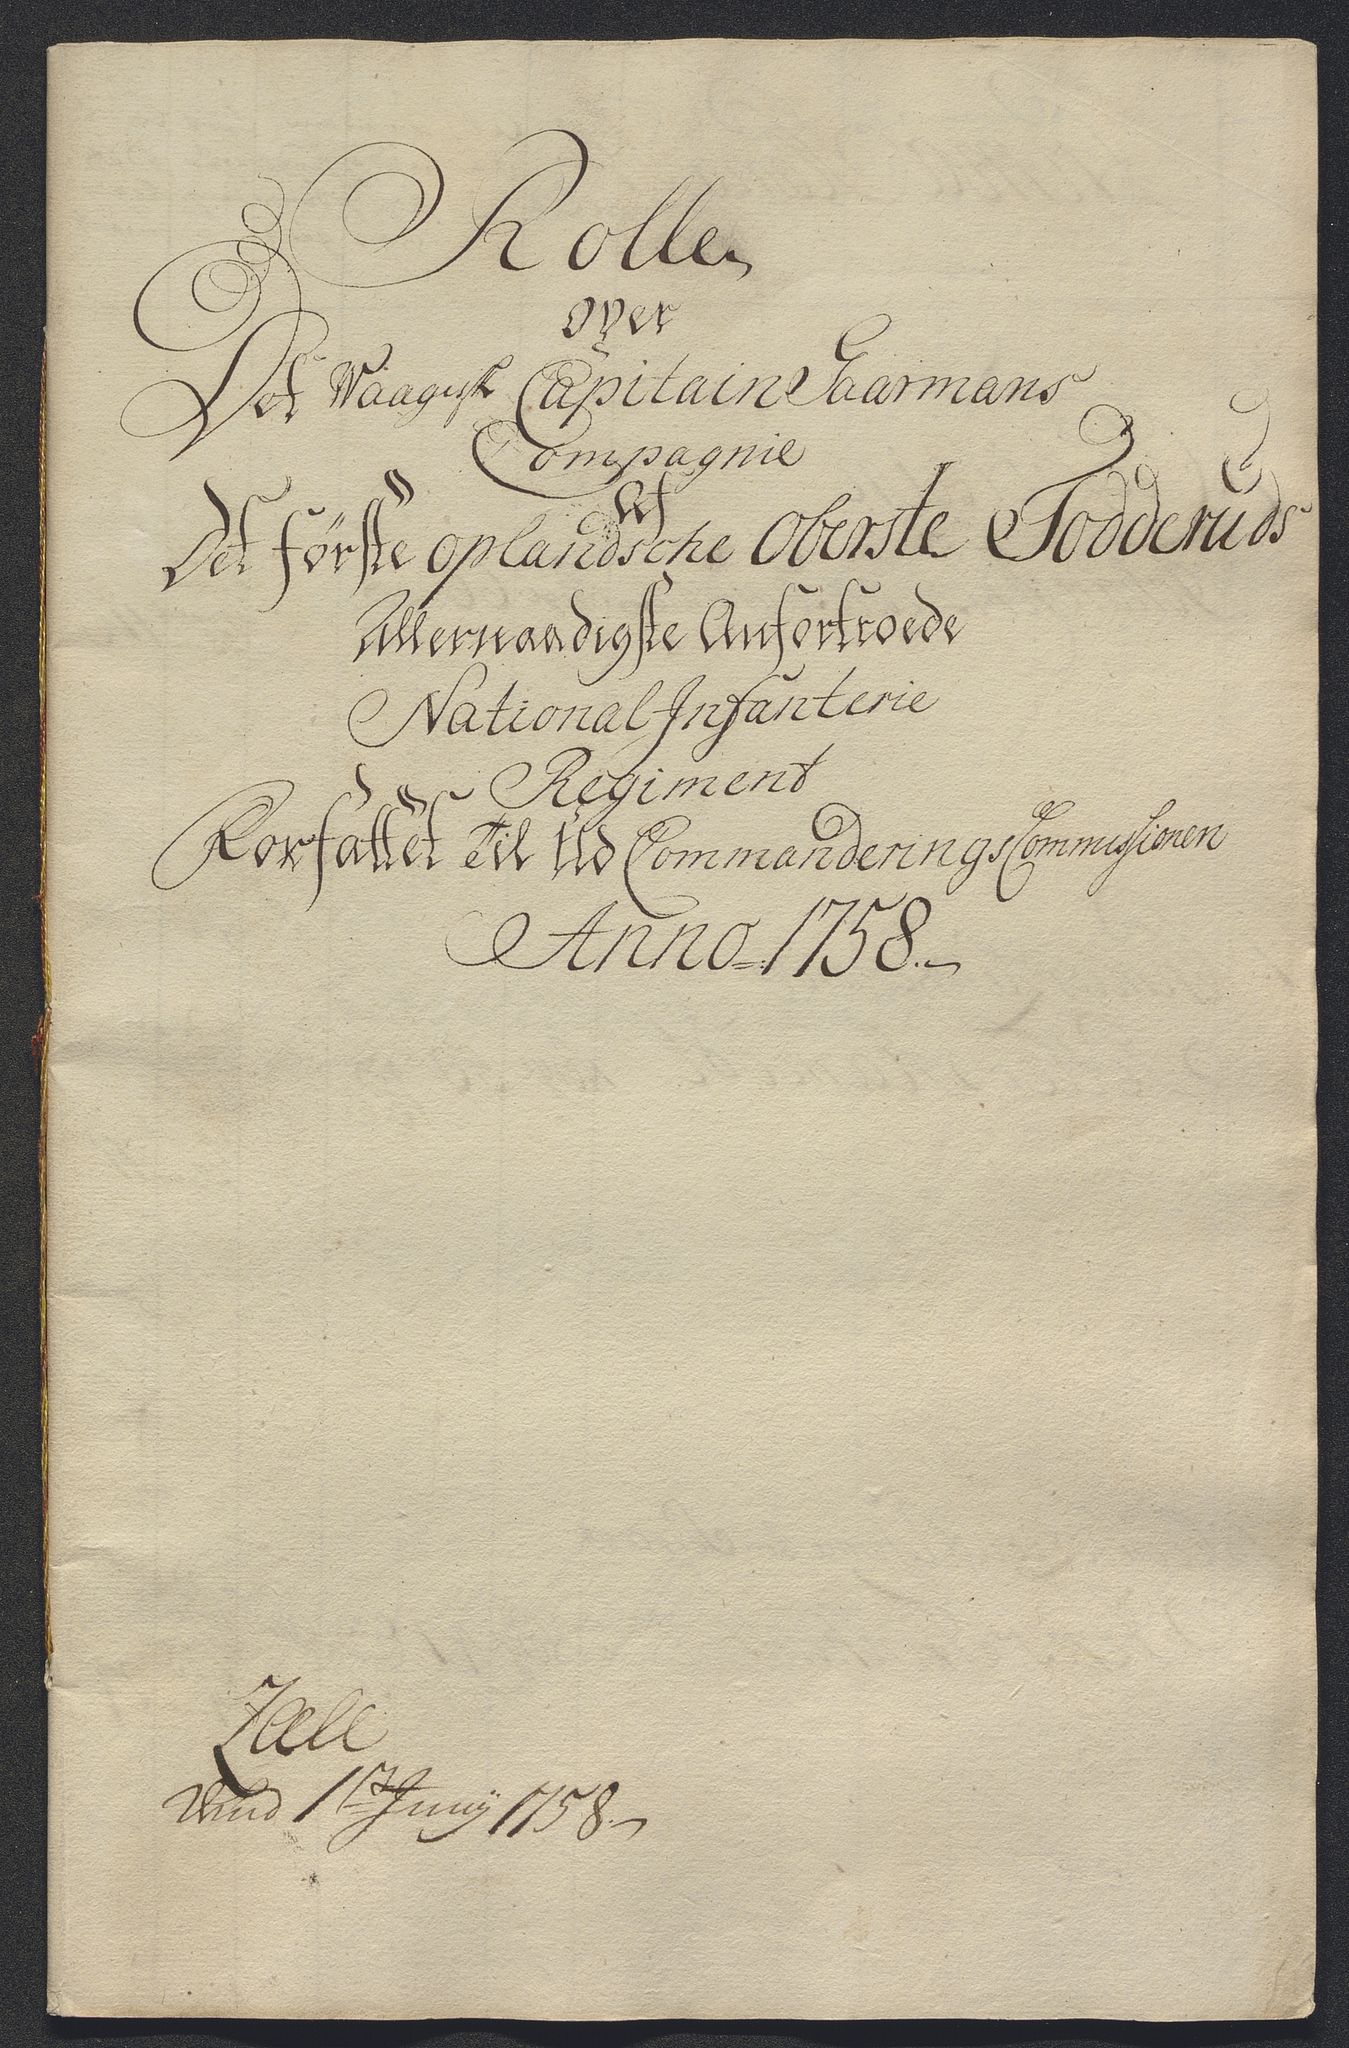 Rolle
over
Det Waagesk Capitain Gaarmans
Compagnie
Af
Det første oplandsche Oberste Todderuds
Allernaadigste Anfortroede
National Infanterie
Regiment
Forfattet til Ud Commanderings Commissionen
Anno 1758.
1te Junij 1758.